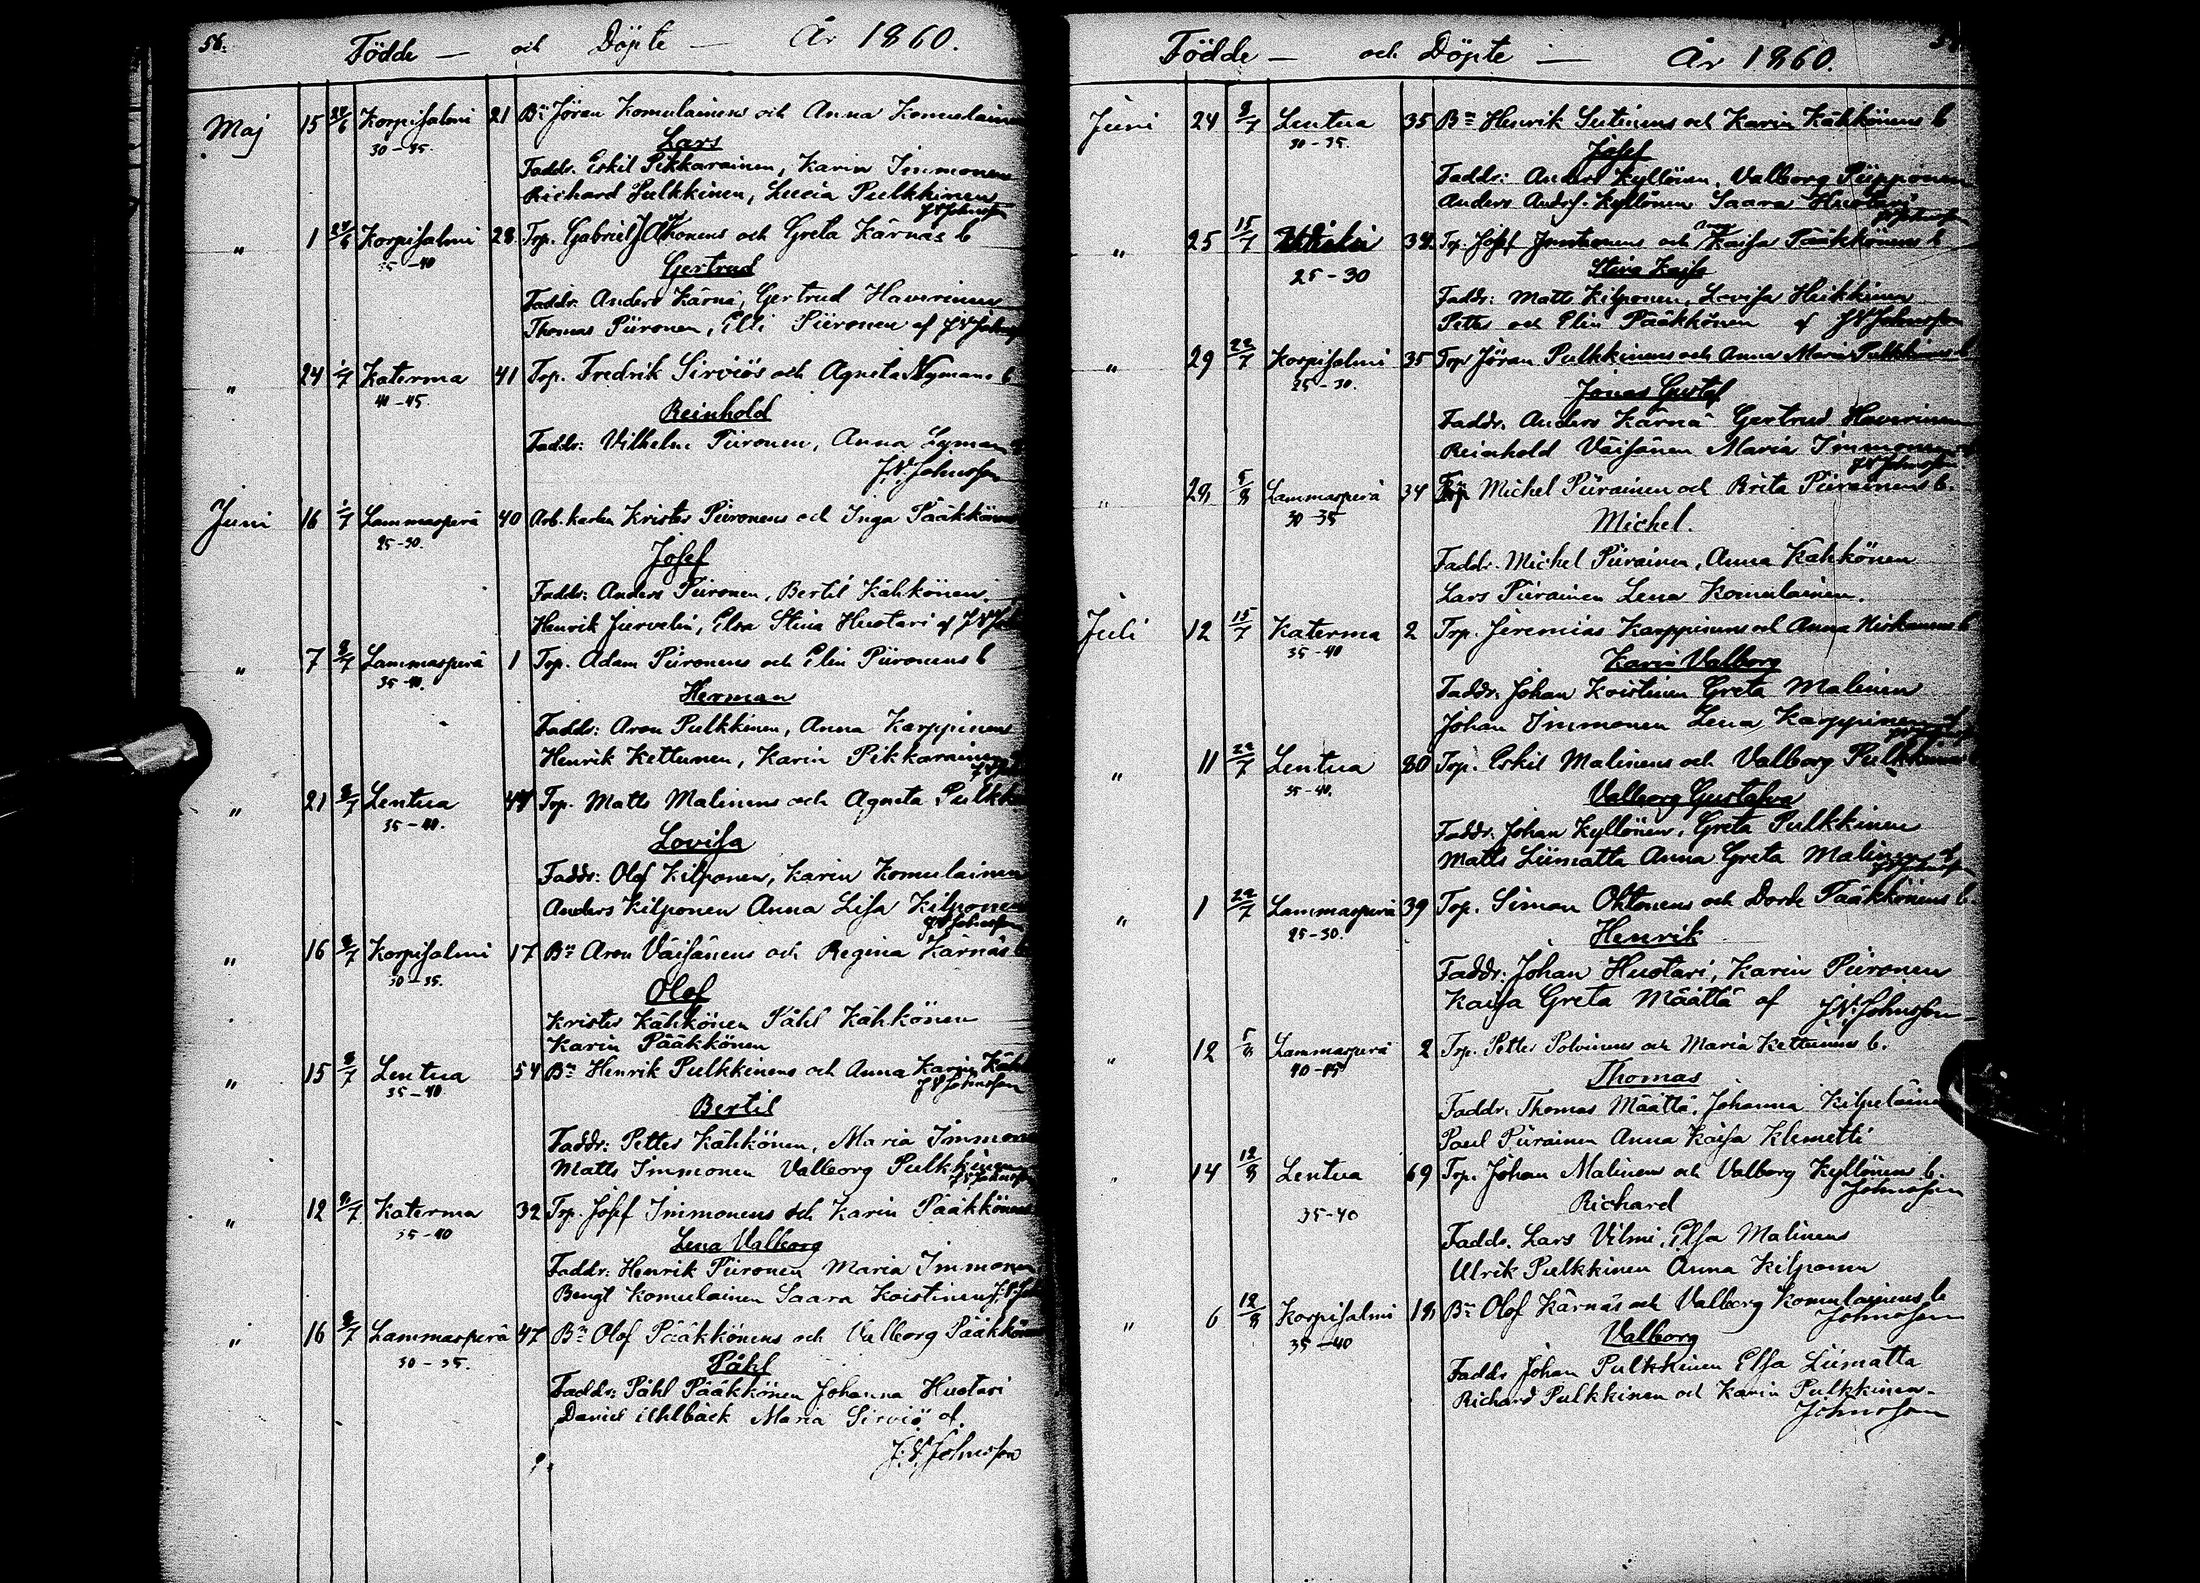 56.
Födde — och Döpte — År 1860.
Maj 15 24/6 Korpisalmi 21 Bn Jöran Komulainens och Anna Komulain
30-35. Lars
Faddr. Eskil Pikkarainen, Karin Immonen
Richard Pulkkinen, Lucia Pulkkinen
JVJohnsson
" 1 24/6 Korpisalmi 28 Trp. Gabriel och Greta Kärnäs b
35-40 Gertrud
Faddr. Anders Kärnä, Gertrud Haverinen
Thomas Piironen, Elli Piironen af JVJohns
" 24 1/7 Katerma 41 Trp. Fredrik Sirviös och Agneta Nymans b
40-45. Reinhold
Faddr: Vilhelm Piironen, Anna Lyman
J.V.Johnsson
Juni 16 1/7 Lammasperä 40 Arb.karlen Krister Piironens och Inga Pääkköne
25-30. Josef
Faddr: Anders Piironen, Bertil Kähkönen
Henrik Jurvelin, Elsa Stina Huotari af JVJoh
" 7 8/7 Lammasperä 1 Trp. Adam Piironens och Elin Piironens b
35-40. Herman
Faddr: Aron Pulkkinen, Anna Karppinen
Henrik Kettunen, Karin Pikkarainen
" 21 8/7 Lentua 44 Trp. Matts Malinens och Agneta Pulkk
35-40. Lovisa
Faddr: Olof Kilponen, Karin Komulainen
Anders Kilponen Anna Lisa Kilponen
JVJohnsson
" 16 8/7 Korpisalmi 17 Bn Aron Väisänens och Regina Kärnäs b
30-35. Olof
Krister Kähkönen Påhl Kähkönen
Karin Pääkkönen
" 15 8/7 Lentua 54 Bn Henrik Pulkkinens och Anna Karin Kähk
35-40 JVJohnsson
Bertil
Faddr: Petter Kähkönen, Maria Immone
Matts Immonen Valborg Pulkkinen
JVJohnsson
" 12 8/7 Katerma 32 Trp. Josef Immonens och Karin Pääkkönens
35-40 Lena Valborg
Faddr: Henrik Piironen Maria Immonen
Bengt Komulainen Saara Koistinen J.V.Joh
" 16 8/7 Lammasperä 47 Bn Olof Pääkkönens och Valborg Pääkköne
30-35. Påhl
Faddr: Påhl Pääkkönen Johanna Huotari
Daniel Uhlbäck Maria Sirviö af
J.V.Johnsson
Födde — och Döpte — År 1860.
Juni 24 8/7 Lentua 35 Bn Henrik Sutinens och Karin Kähkönens b
30-35. Josef
Faddr: Anders Kyllönen, Valborg Piipponen
Anders Andrs. Kyllönen Saara Huotari
JVJohnsson
" 25 15/7 34. Tp. Josef Juntunens och Anna Kaisa Pääkkönens b
25-30 Stina Kaisa
Faddr: Matts Kilponen, Lovisa Heikkinen
Petter och Elin Pääkkönen af JVJohnsson
" 29 22/7 Korpisalmi 35 Trp Jöran Pulkkinens och Anna Maria Pulkkinens b
25-30. Jonas Gustaf
Faddr. Anders Kärnä Gertrud Haverinen
Reinhold Väisänen Maria Immonen
JVJohnsson
" 29 5/8 Lammasperä 34 Trp Michel Piirainen och Brita Piirainens b.
30-35 Michel.
Faddr. Michel Piirainen, Anna Kähkönen
Lars Piirainen Lena Komulainen.
Juli 12 15/7 Katerma 2 Trp. Jeremias Karppinens och Anna Hirkonens b
35-40 Karin Valborg
Faddr: Johan Koistinen Greta Malinen
Johan Immonen Lena Karppinen af
" 11 22/7 Lentua 80 Trp. Eskil Malinens och Valborg Pulkkinens
35-40. Valborg Gustafva
Faddr. Johan Kyllönen, Greta Pulkkinen
Matts Liimatta Anna Greta Malinen af
JVJohnsson
" 1 22/7 Lammasperä 39 Trp. Simon Ohtonens och Dorde Pääkkönens b.
25-30. Henrik
Faddr: Johan Huotari, Karin Piironen
Kaisa Greta Määttä af J.V.Johnsson
" 12 5/8 Lammasperä 2 Trp. Petter Polvinens och Maria Kettunens b.
40-45 Thomas
Faddr. Thomas Määttä Johanna Kilpeläine
Paul Piirainen Anna Kaisa Klemetti
" 14 12/8 Lentua 69 Trp. Johan Malinens och Valborg Kyllönens b.
Johnsson
Richard
35-40
Faddr. Lars Vilmi, Elsa Malinens
Ulrik Pulkkinen Anna Kilponen
" 6 12/8 Korpisalmi 18 Bn Olof Kärnäs och Valborg Komulainens b
35-40 Johnsson
Valborg
Faddr Johan Pulkkinen Elsa Liimatta
Richard Pulkkinen och Karin Pulkkinen.
Johnsson